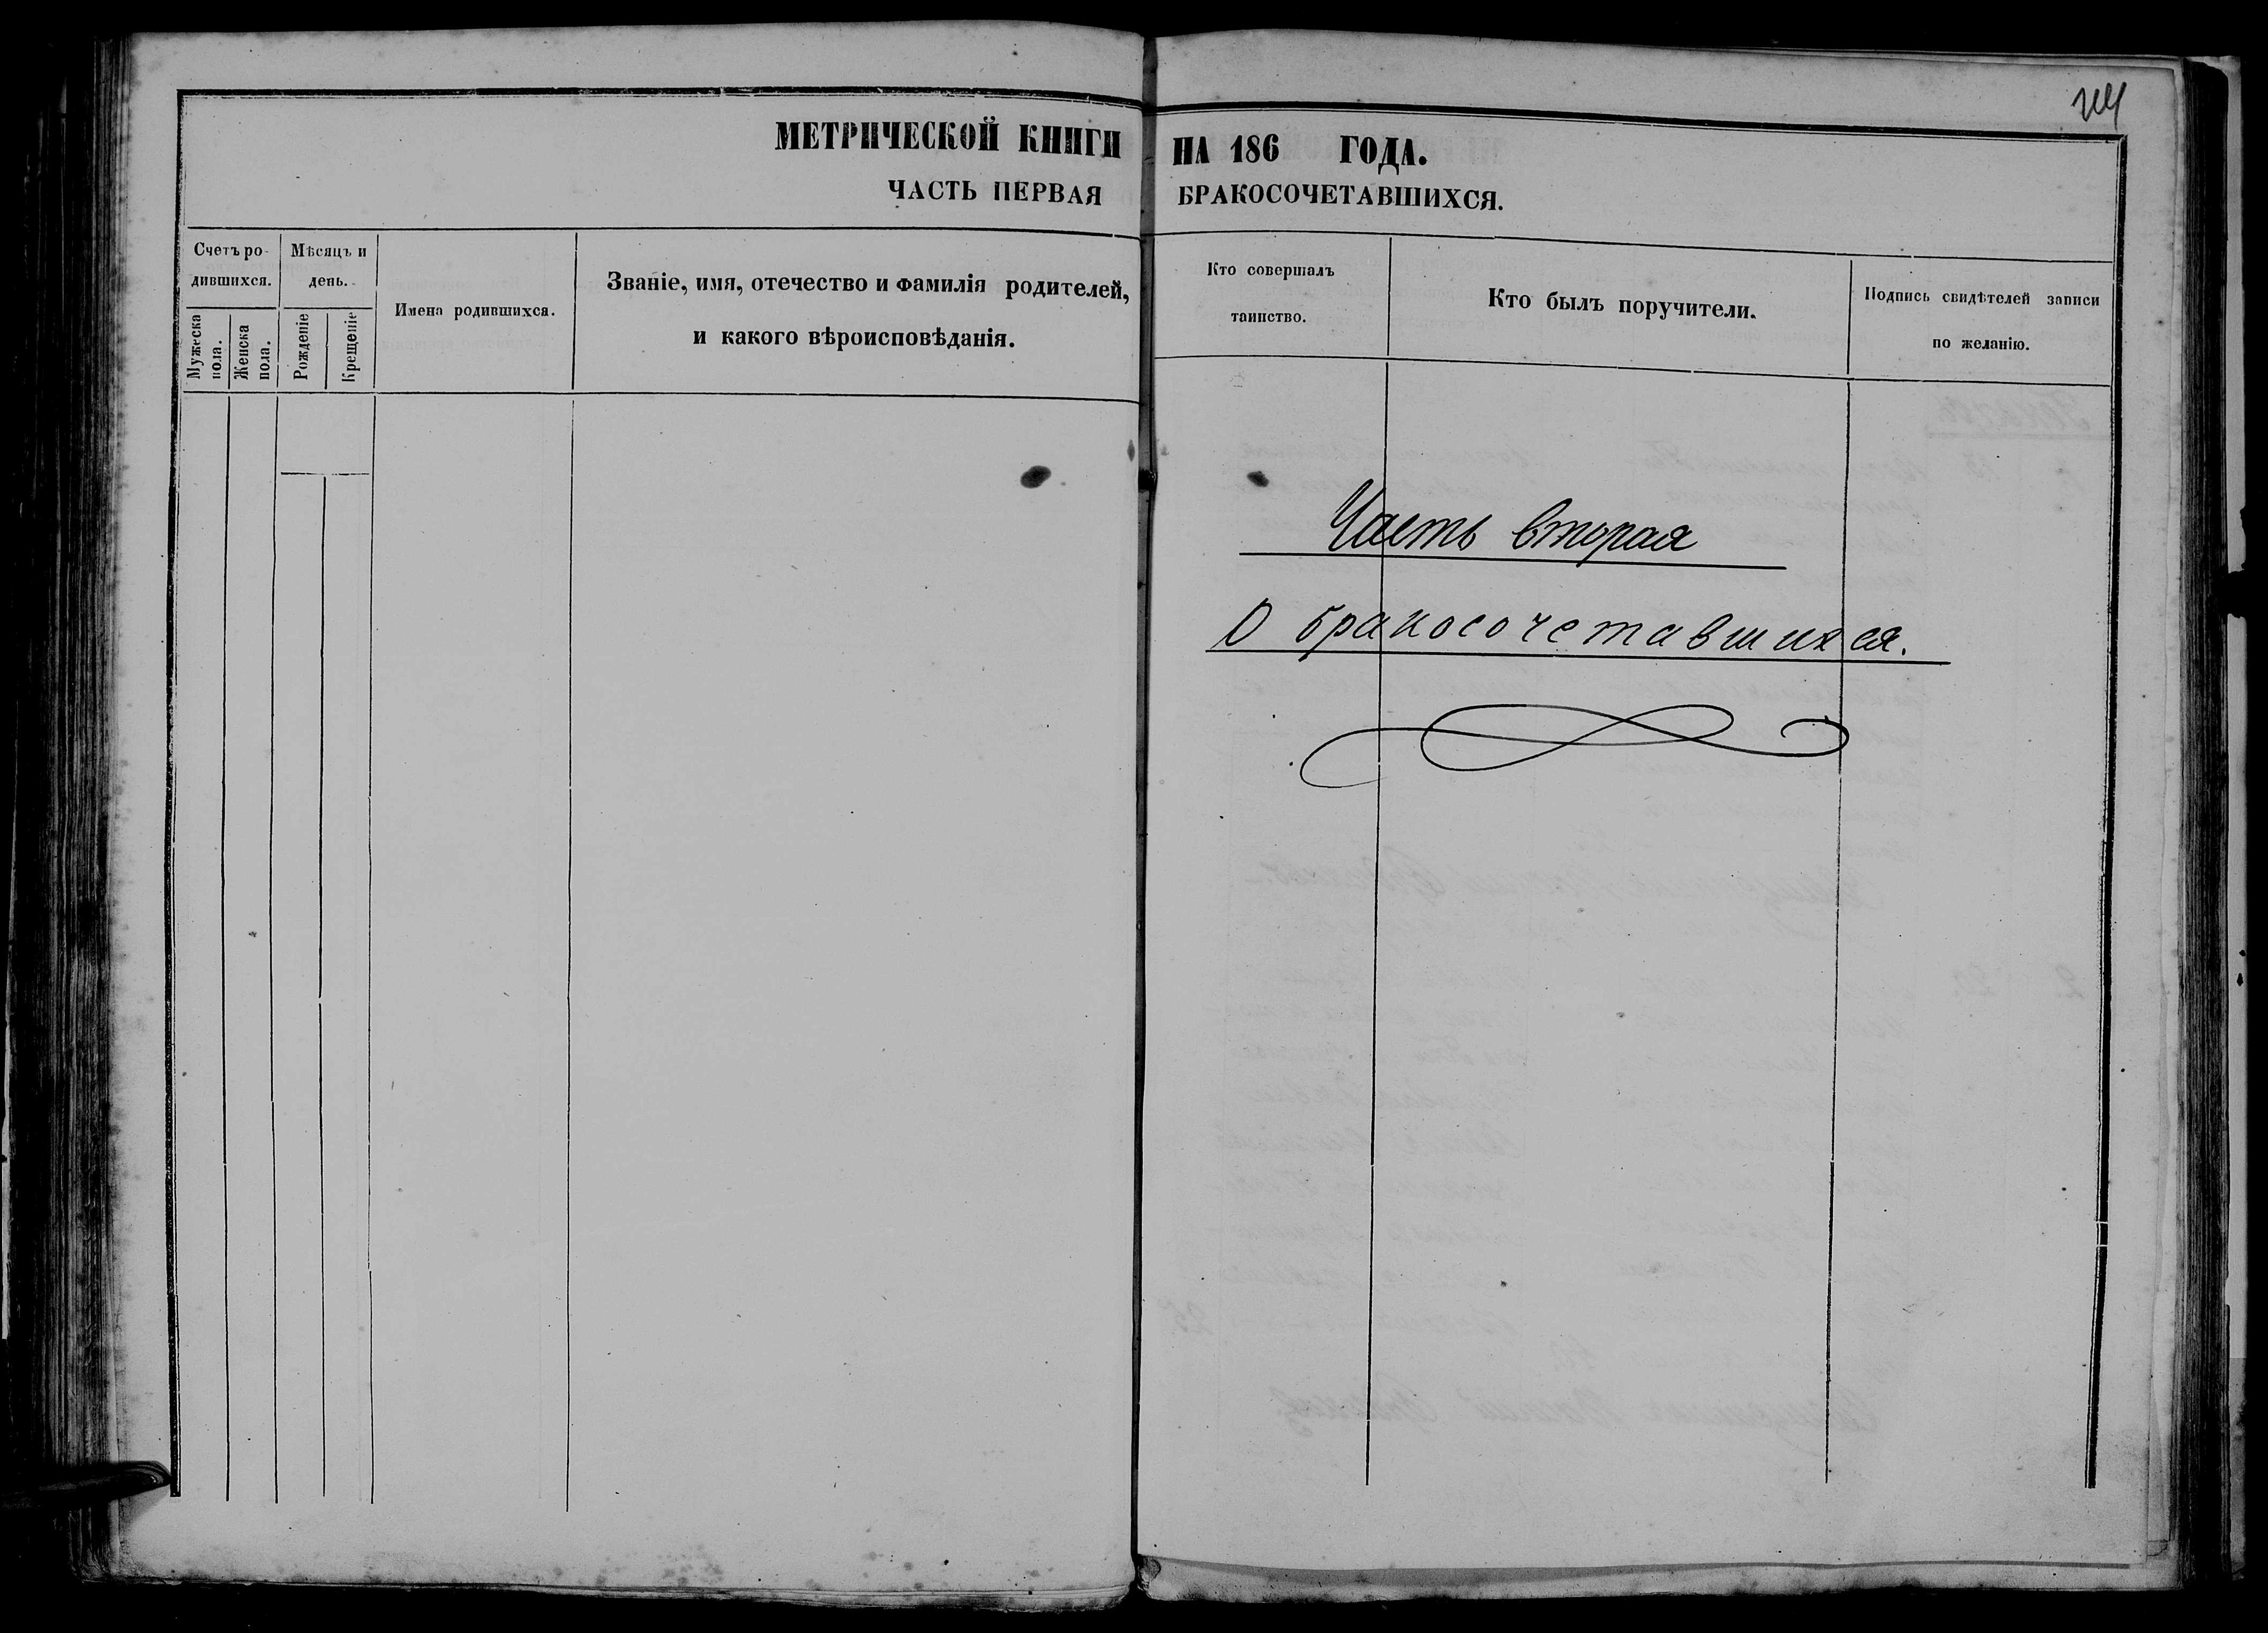 МЕТРИЧЕСКОЙ КНИГИ
ЧАСТЬ ПЕРВАЯ
Счетъ ро-
дившихся.
Мужеска
пола.
Женска
пола.
Мѣсяцъ и
день.
Рожденіе
Крещеніе
Имена родившихся.
Званіе, имя, отечество и фамилія родителей,
и какого вѣроисповѣданія.
НА 186 ГОДА.
БРАКОСОЧЕТАВШИХСЯ.
Кто совершалъ
таинство.
Кто былъ поручители.
Подпись свидѣтелей записи
по желанію.
Часть вторая
О бракосочетавшихся.